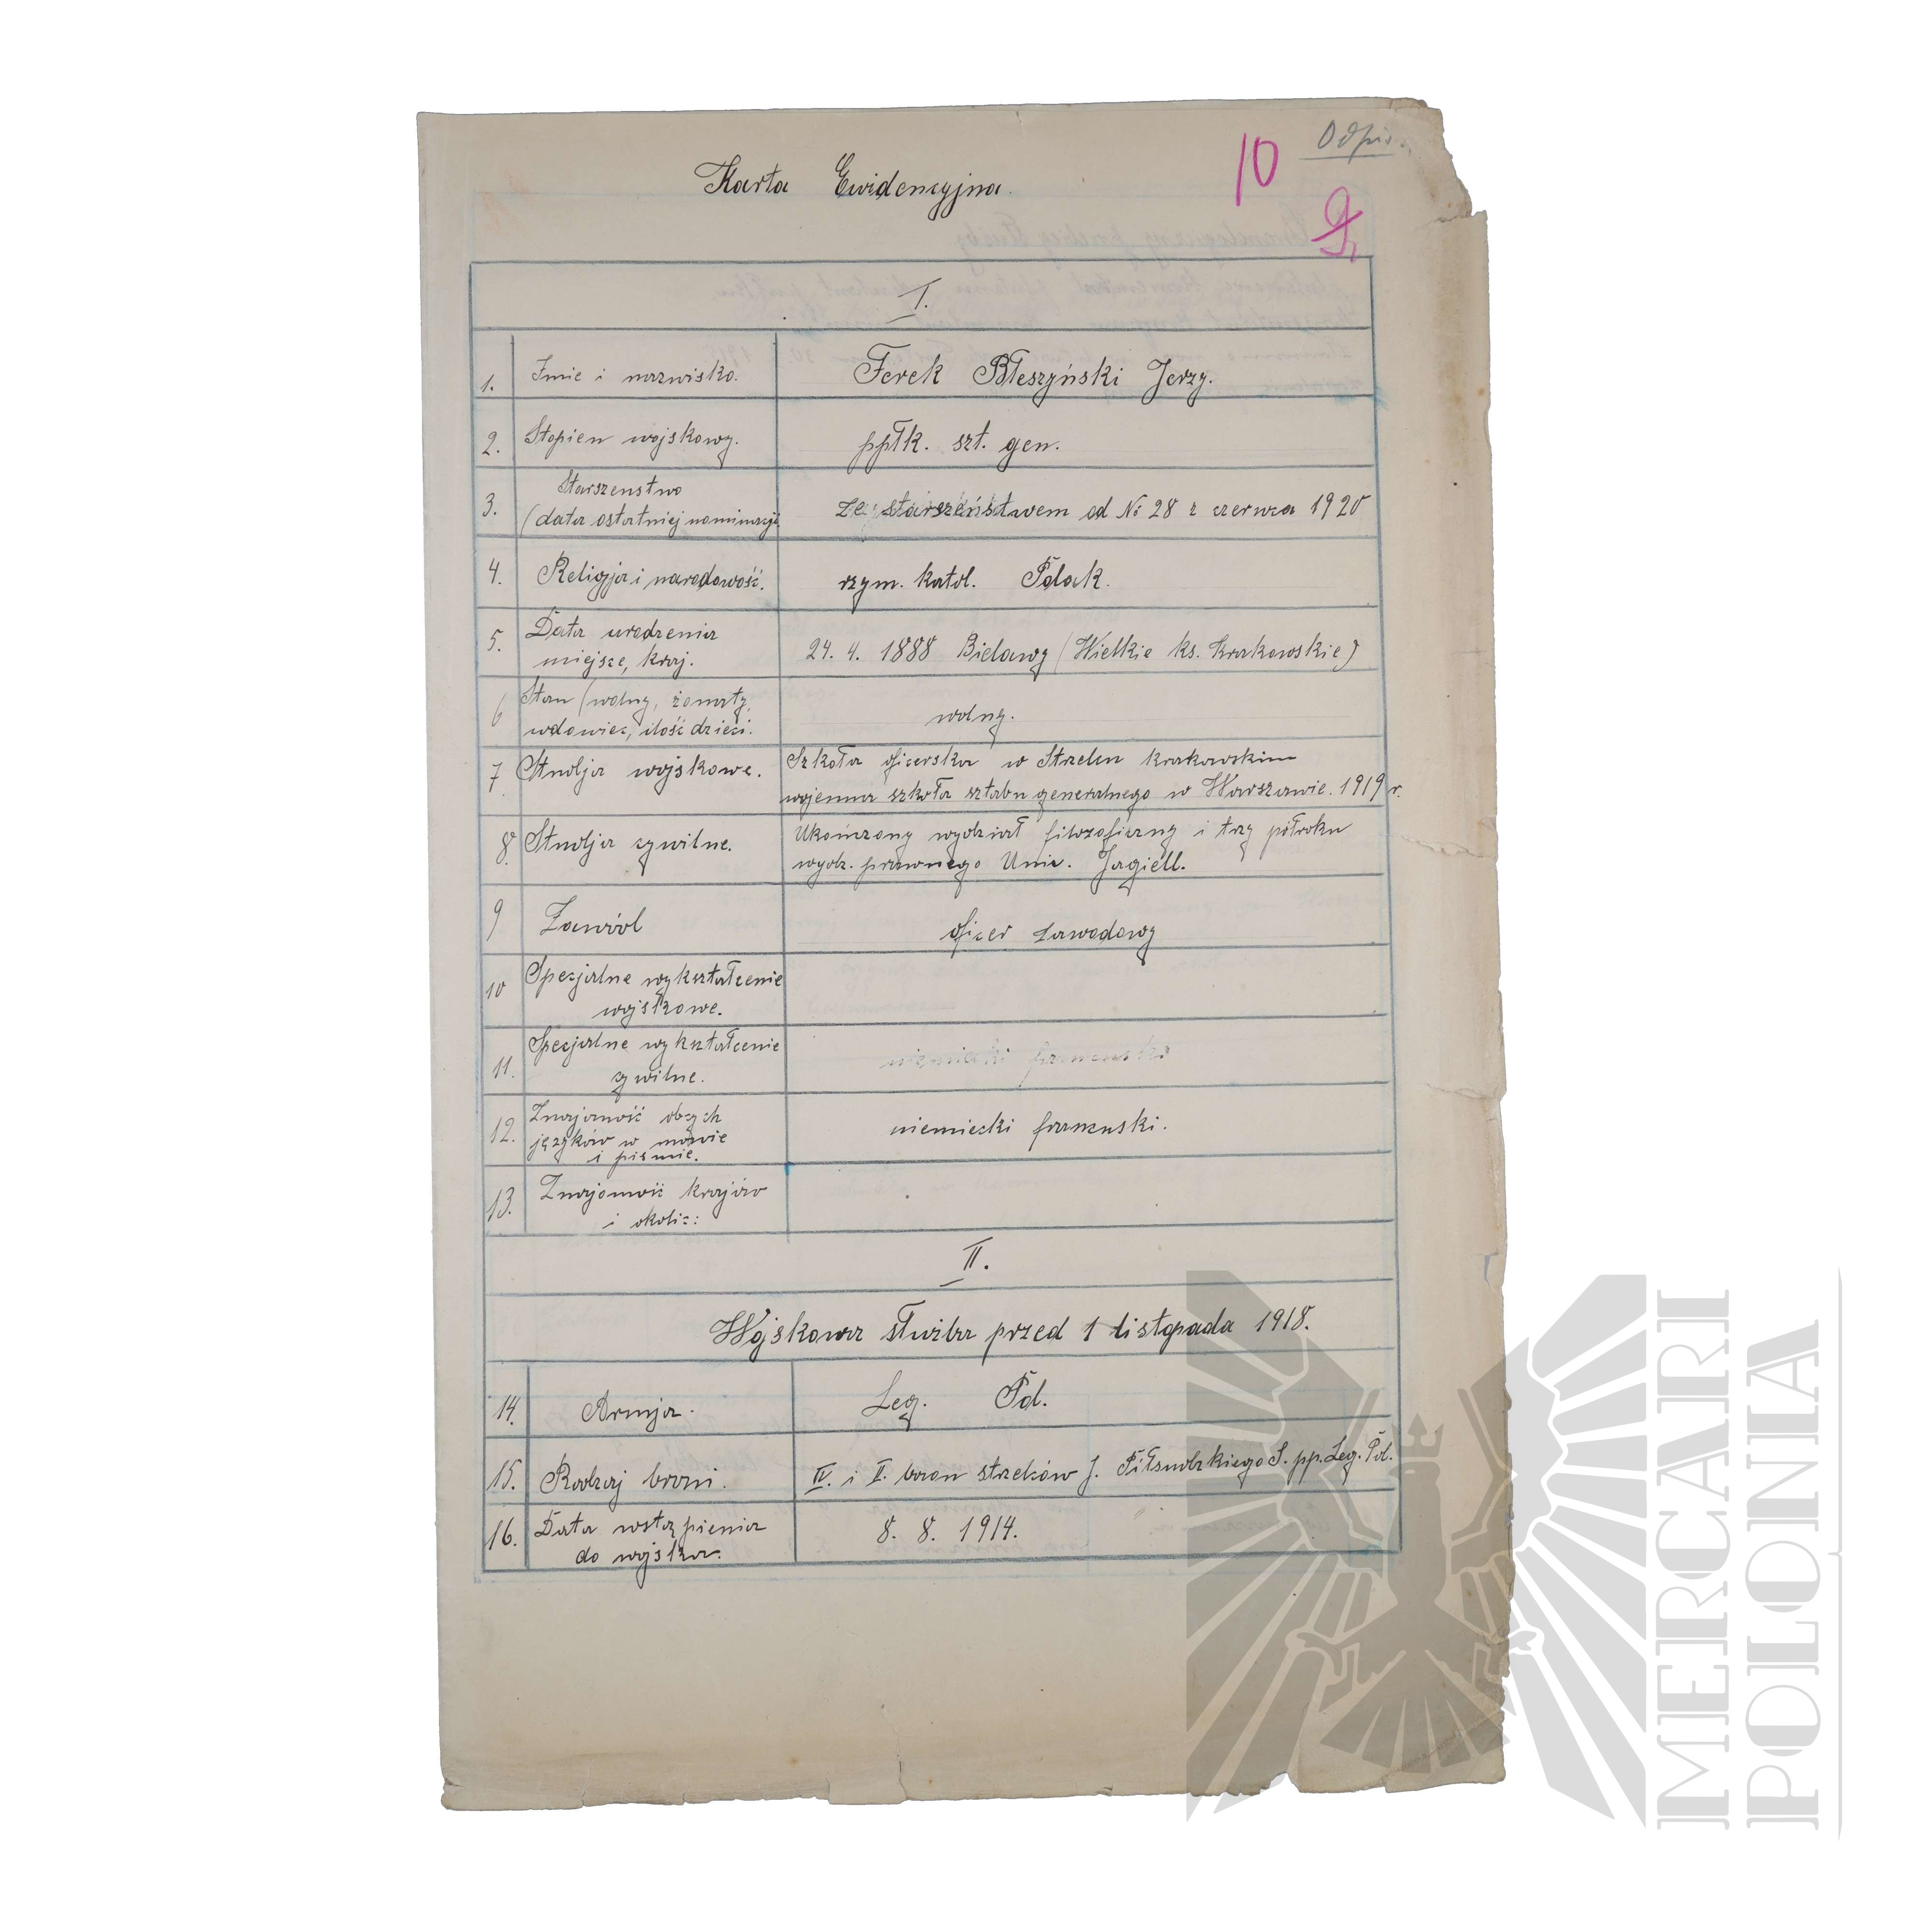 Odpis
10
Karta Ewidencyjna.
I.
1. Imie i nazwisko. Ferek Błeszyński Jerzy.
2. Stopien wojskowy. ppłk. szt. gen.
3. Starszenstwo
(data ostatniej nominacji ze starszeństwem od No 28 z czerwca 1920
4. Religja i narodowość. rzym. katol. Polak.
5. Data urodzenia
miejsce, kraj. 24. 4. 1888 Bielawy (Wielkie ks. Krakowskie)
6 Stan (wolny, żonaty,
wdowiec, ilość dzieci. wolny.
7 Studja wojskowe. Szkoła oficerska w Strzelcu krakowskim
wojenna szkoła sztabu generalnego w Warszawie. 1919 r.
8. Studja cywilne. Ukończony wydział filozoficzny i trzy półroku
wydz. prawnego Univ. Jagiell.
9 Zawód oficer zawodowy
10 Specjalne wykształcenie
wojskowe.
11. Specjalne wykształcenie
cywilne. niemiecki francuski
12. Znajomość obcych
języków w mowie
i pismie. niemiecki francuski.
13. Znajomość krajów
i okolic:
II.
Wojskowa służba przed 1 listopada 1918.
14. Armja. Leg. Pol.
15. Rodzaj broni. IV. i I. baon strzelców J. Piłsudzkiego 5. pp. Leg. Pol.
16. Data wstąpienia
do wojska. 8. 8. 1914.
MERCARI
POLONIA